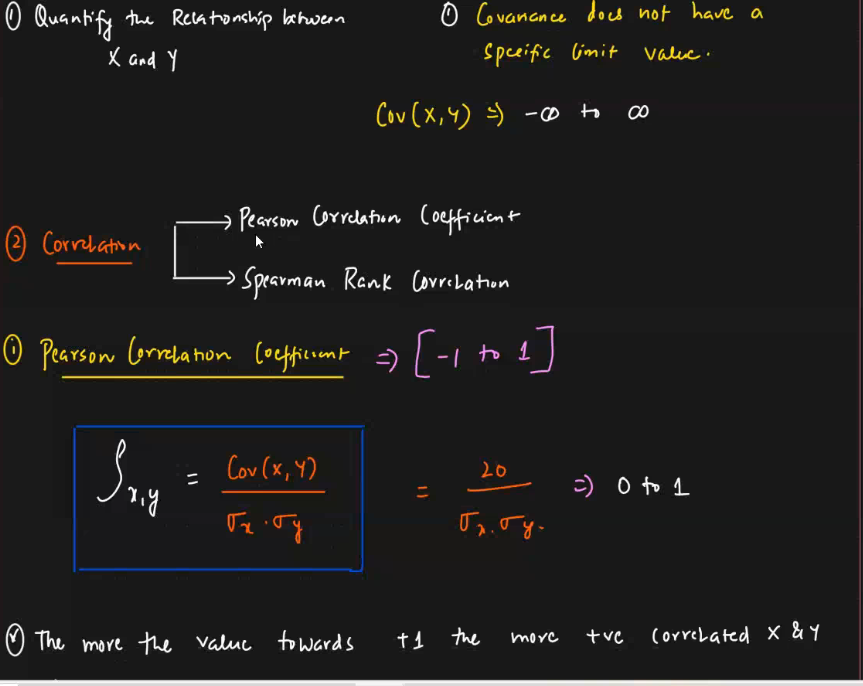 ① Quantify the Relationship between
X and Y
① Covariance does not have a
specific limit value.
Cov(X,Y) ⇒ -∞ to ∞
② Correlation
→ Pearson Correlation Coefficient
→ Spearman Rank Correlation
① Pearson Correlation Coefficient ⇒ [-1 to 1]
ρx,y = Cov(x,y) / σx · σy = 20 / σx . σy. ⇒ 0 to 1
The more the value towards +1 the more +ve correlated X & Y